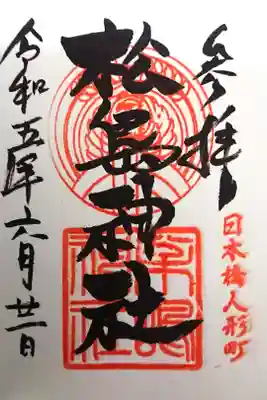 参拝
日本橋人形町
松島神社
令和五年六月廿一日